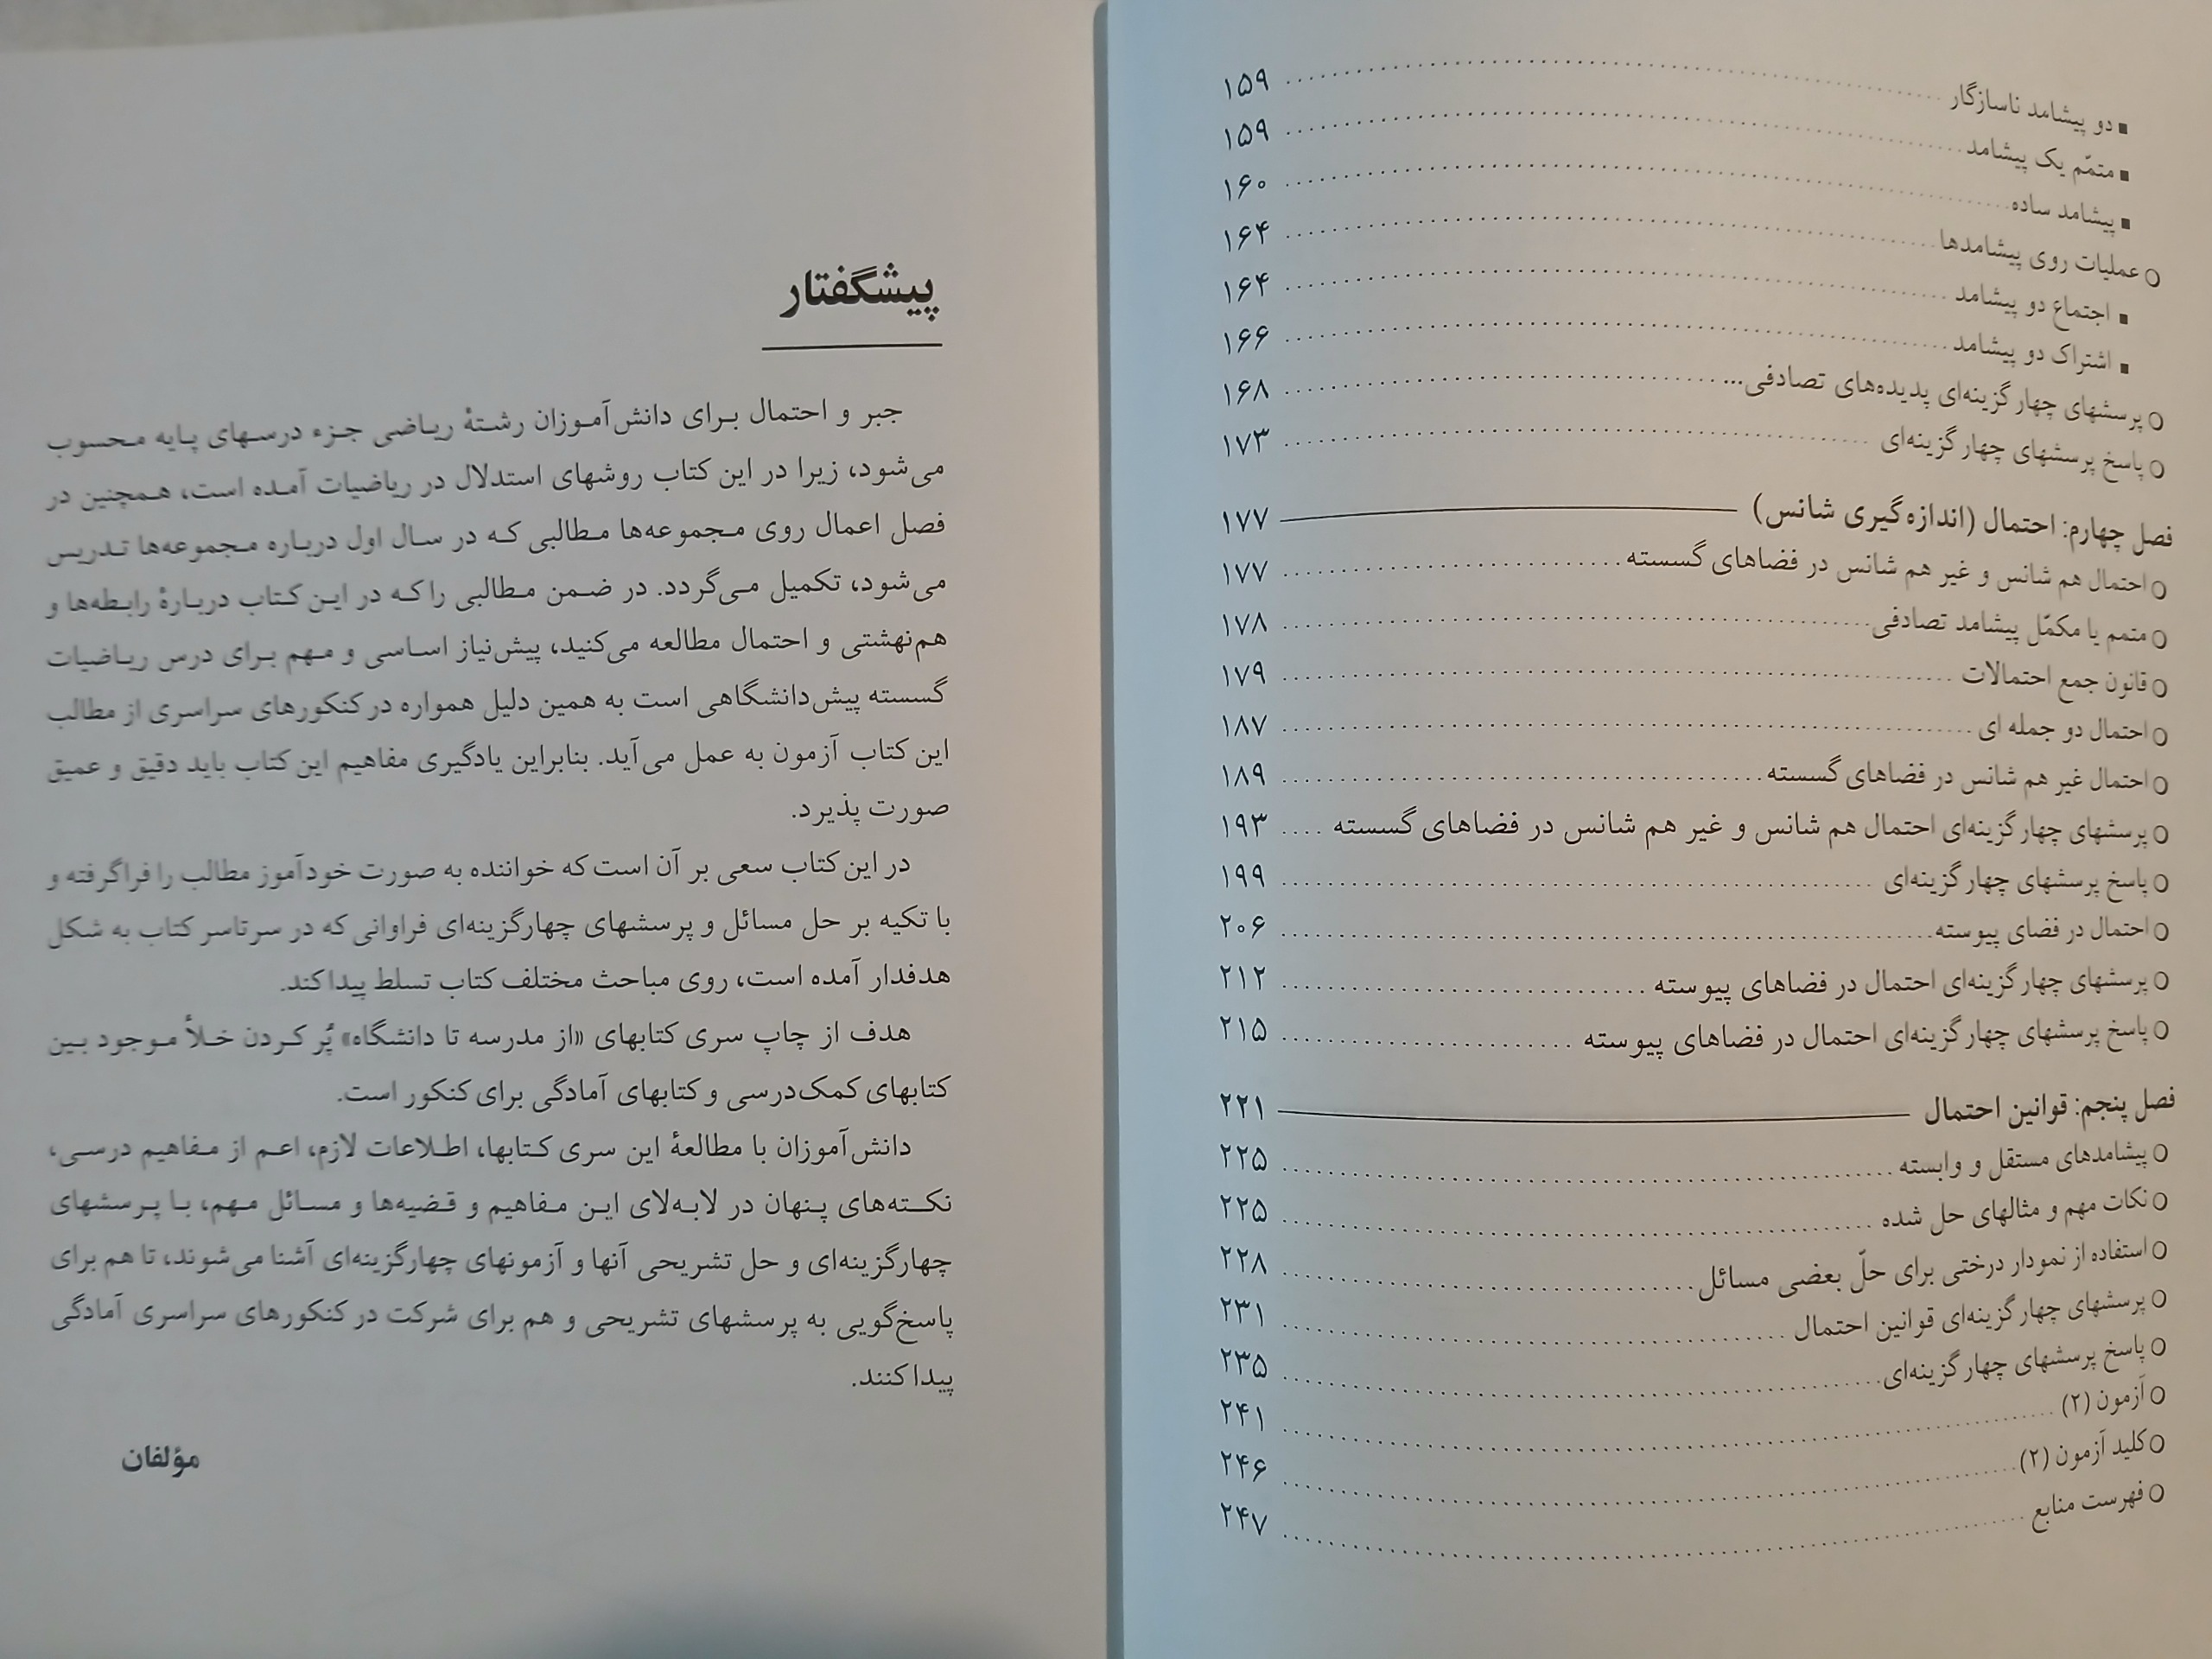 ▪ دو پیشامد ناسازگار ........ ۱۵۹
▪ متمّم یک پیشامد ........ ۱۵۹
▪ پیشامد ساده ........ ۱۶۰
○ عملیات روی پیشامدها ........ ۱۶۴
▪ اجتماع دو پیشامد ........ ۱۶۴
▪ اشتراک دو پیشامد ........ ۱۶۶
○ پرسشهای چهارگزینه‌ای پدیده‌های تصادفی... ........ ۱۶۸
○ پاسخ پرسشهای چهارگزینه‌ای ........ ۱۷۳
فصل چهارم: احتمال (اندازه‌گیری شانس) ۱۷۷
○ احتمال هم شانس و غیر هم شانس در فضاهای گسسته ........ ۱۷۷
○ متمم یا مکمّل پیشامد تصادفی ........ ۱۷۸
○ قانون جمع احتمالات ........ ۱۷۹
○ احتمال دو جمله ای ........ ۱۸۷
○ احتمال غیر هم شانس در فضاهای گسسته ........ ۱۸۹
○ پرسشهای چهارگزینه‌ای احتمال هم شانس و غیر هم شانس در فضاهای گسسته .... ۱۹۳
○ پاسخ پرسشهای چهارگزینه‌ای ........ ۱۹۹
○ احتمال در فضای پیوسته ........ ۲۰۶
○ پرسشهای چهارگزینه‌ای احتمال در فضاهای پیوسته ........ ۲۱۲
○ پاسخ پرسشهای چهارگزینه‌ای احتمال در فضاهای پیوسته ........ ۲۱۵
فصل پنجم: قوانین احتمال ۲۲۱
○ پیشامدهای مستقل و وابسته ........ ۲۲۵
○ نکات مهم و مثالهای حل شده ........ ۲۲۵
○ استفاده از نمودار درختی برای حلّ بعضی مسائل ........ ۲۲۸
○ پرسشهای چهارگزینه‌ای قوانین احتمال ........ ۲۳۱
○ پاسخ پرسشهای چهارگزینه‌ای ........ ۲۳۵
○ آزمون (۲) ........ ۲۴۱
○ کلید آزمون (۲) ........ ۲۴۶
○ فهرست منابع ........ ۲۴۷
پیشگفتار
جبر و احتمال برای دانش‌آموزان رشتهٔ ریاضی جزء درسهای پایه محسوب
می‌شود، زیرا در این کتاب روشهای استدلال در ریاضیات آمده است، همچنین در
فصل اعمال روی مجموعه‌ها مطالبی که در سال اول درباره مجموعه‌ها تدریس
می‌شود، تکمیل می‌گردد. در ضمن مطالبی را که در این کتاب دربارهٔ رابطه‌ها و
هم‌نهشتی و احتمال مطالعه می‌کنید، پیش‌نیاز اساسی و مهم برای درس ریاضیات
گسسته پیش‌دانشگاهی است به همین دلیل همواره در کنکورهای سراسری از مطالب
این کتاب آزمون به عمل می‌آید. بنابراین یادگیری مفاهیم این کتاب باید دقیق و عمیق
صورت پذیرد.
در این کتاب سعی بر آن است که خواننده به صورت خودآموز مطالب را فراگرفته و
با تکیه بر حل مسائل و پرسشهای چهارگزینه‌ای فراوانی که در سرتاسر کتاب به شکل
هدفدار آمده است، روی مباحث مختلف کتاب تسلط پیدا کند.
هدف از چاپ سری کتابهای «از مدرسه تا دانشگاه» پُر کردن خلأ موجود بین
کتابهای کمک‌درسی و کتابهای آمادگی برای کنکور است.
دانش‌آموزان با مطالعهٔ این سری کتابها، اطلاعات لازم، اعم از مفاهیم درسی،
نکته‌های پنهان در لابه‌لای این مفاهیم و قضیه‌ها و مسائل مهم، با پرسشهای
چهارگزینه‌ای و حل تشریحی آنها و آزمونهای چهارگزینه‌ای آشنا می‌شوند، تا هم برای
پاسخ‌گویی به پرسشهای تشریحی و هم برای شرکت در کنکورهای سراسری آمادگی
پیدا کنند.
مؤلفان